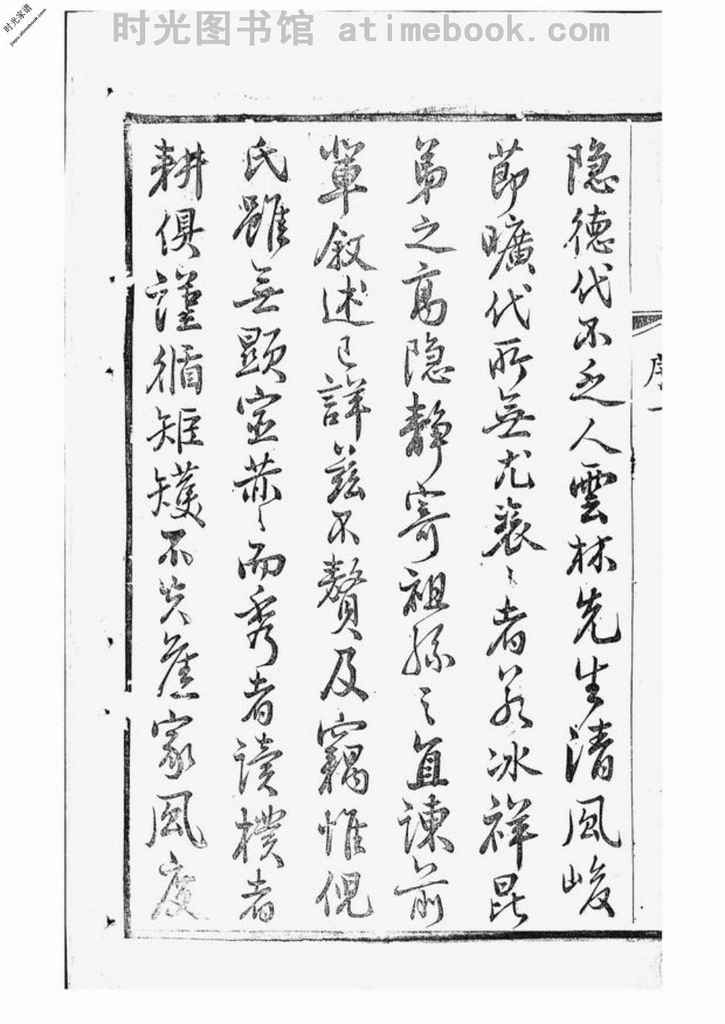 时光图书馆 atimebook.com
时光家谱
隐德代不乏人雲林先生清風峻
節曠代所無尤褎ミ者若冰祥昆
弟之高隐静寄祖孫之直諫前
軰叙述已詳兹不贅及竊惟倪
氏雖無顯宦赫ミ而秀者读樸者
耕俱謹循矩矱不失舊家風度
序一